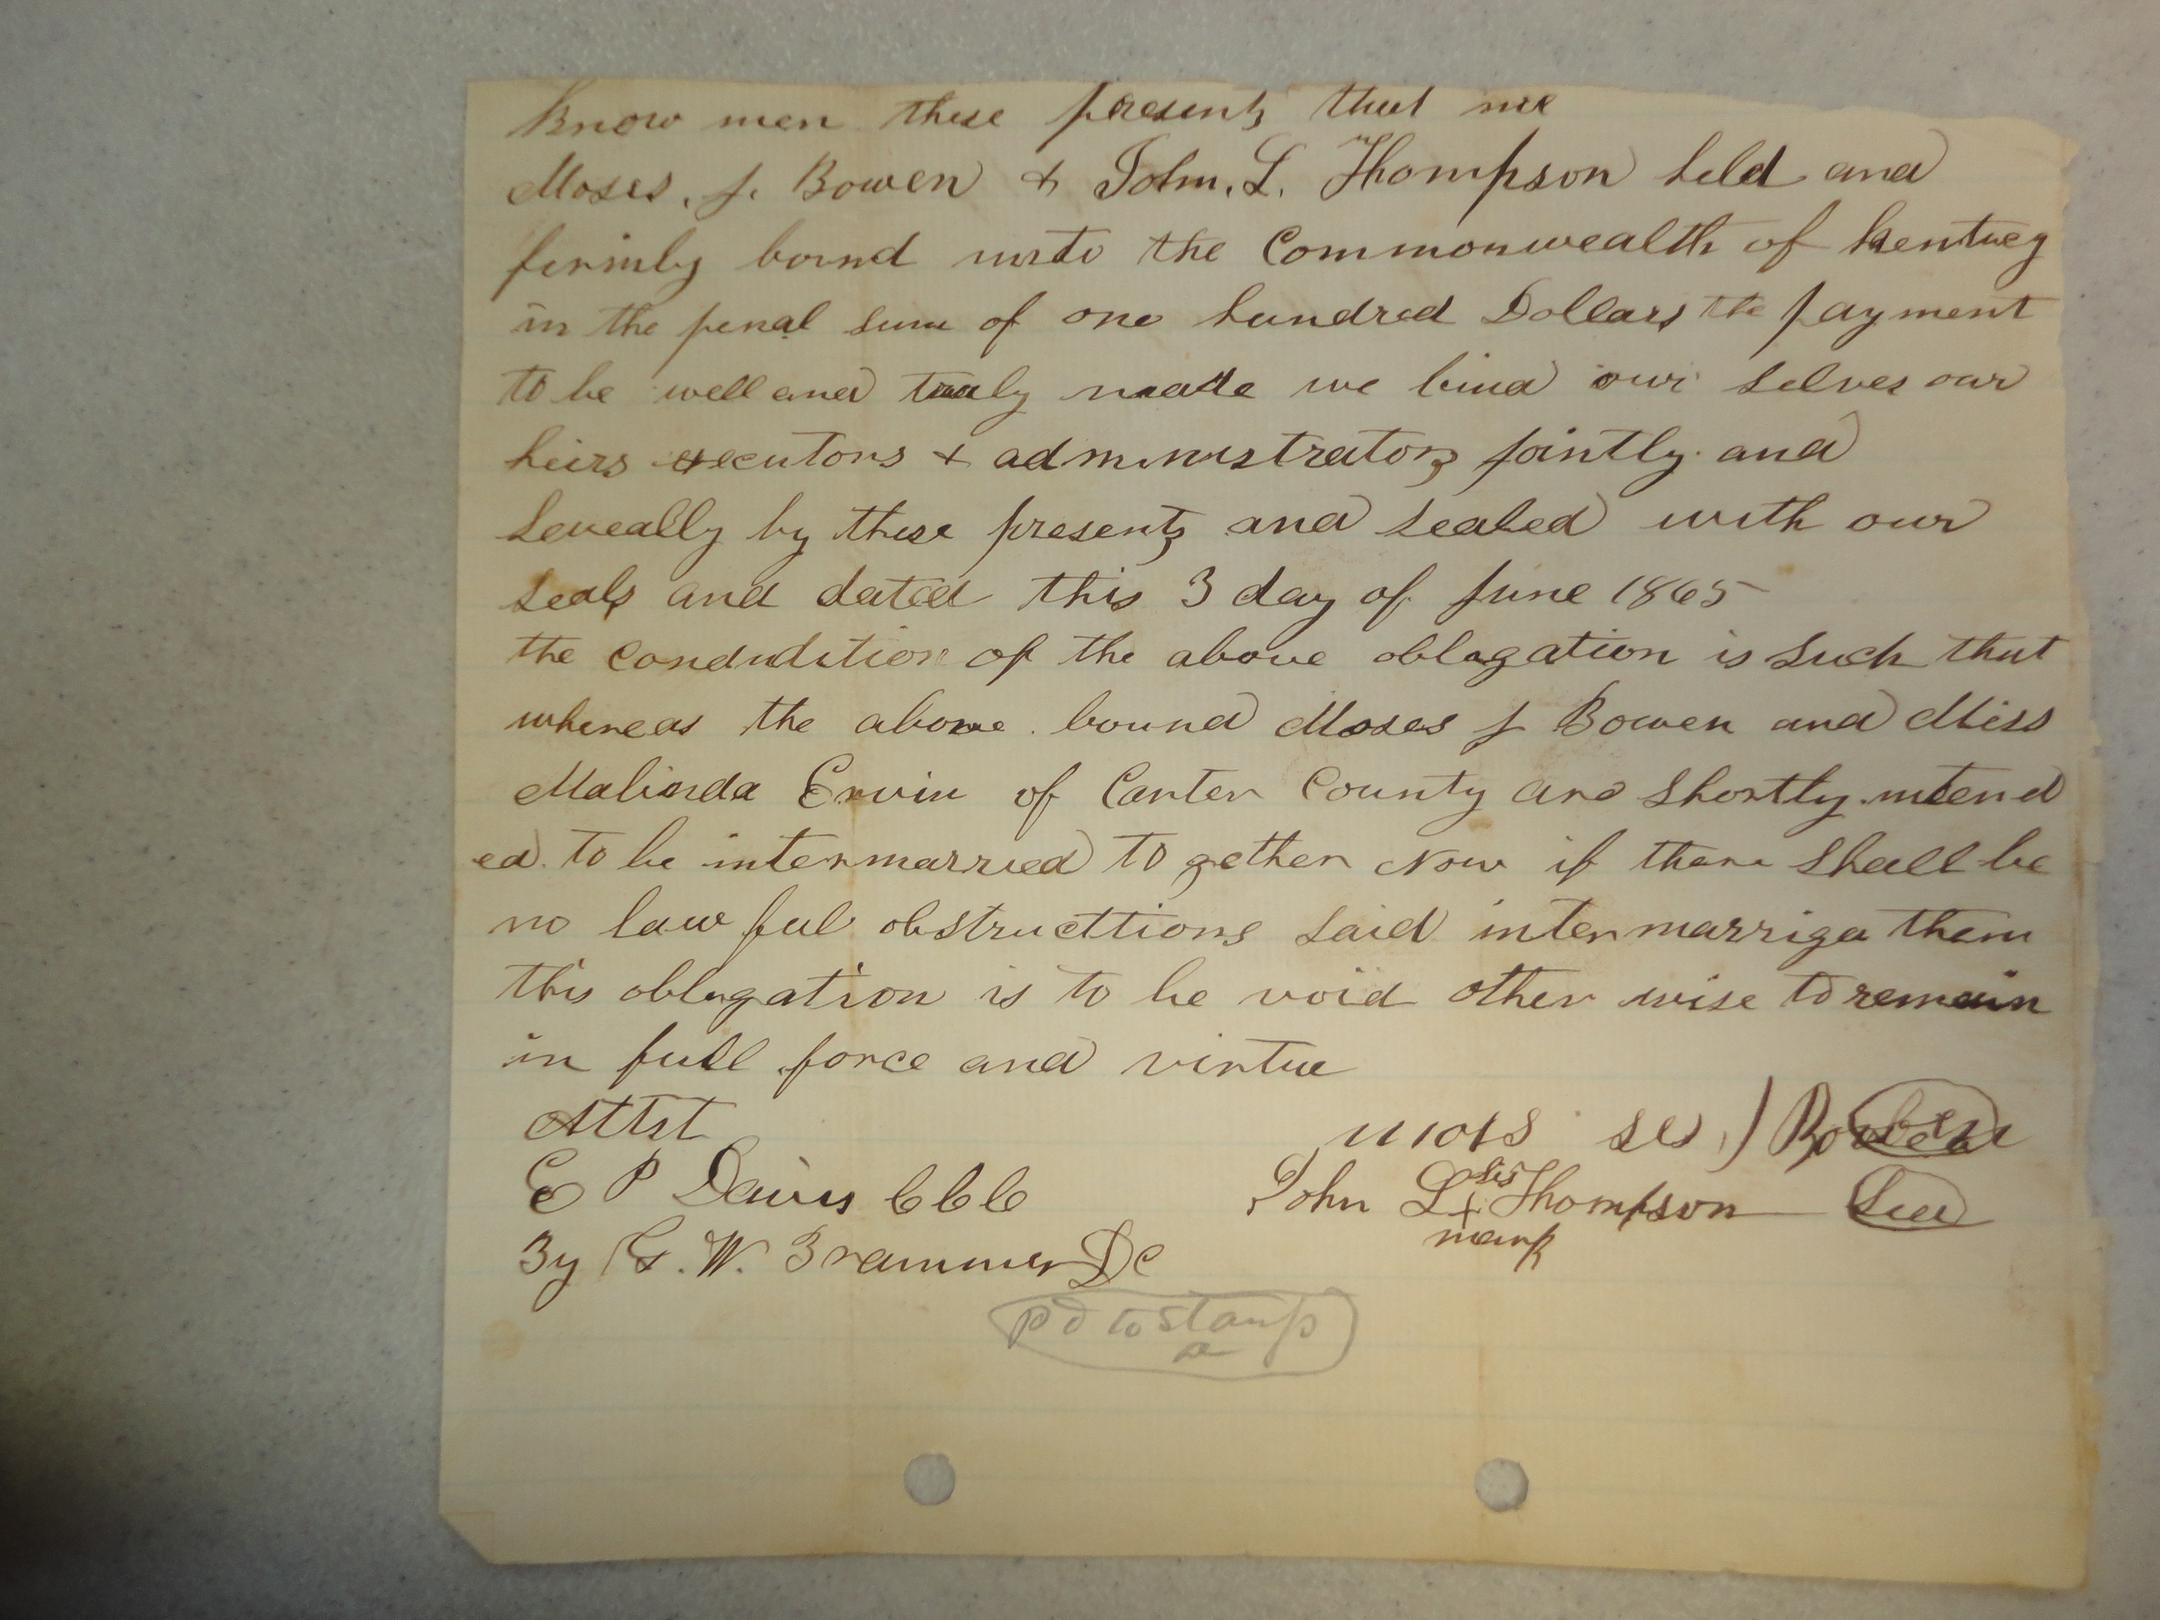 Know men these presents that we
Moses. J. Bowen & John. L. Thompson held and
firmly bound unto the Commonwealth of Kentucy
in the penal sum of one hundred Dollars the payment
to be well and truly made we bind our selves our
heirs executors & administrators jointly and
Seveally by these presents and sealed with our
Seals and dated this 3 day of June 1865
the condudition of the above oblagation is such that
whereas the above bound Moses J Bowen and Miss
Malinda Ervin of Carter County are shortly intend
ed to be intermarried to gether Now if there shall be
no law ful obstructtions said intermarriga them
this oblagation is to be void other wise to remain
in full force and virtue
Attst
Moses J Bowen
E P Davis CCC
John L his Thompson Seal
x
mark
By G. W. Brammer DC
pd to stamp